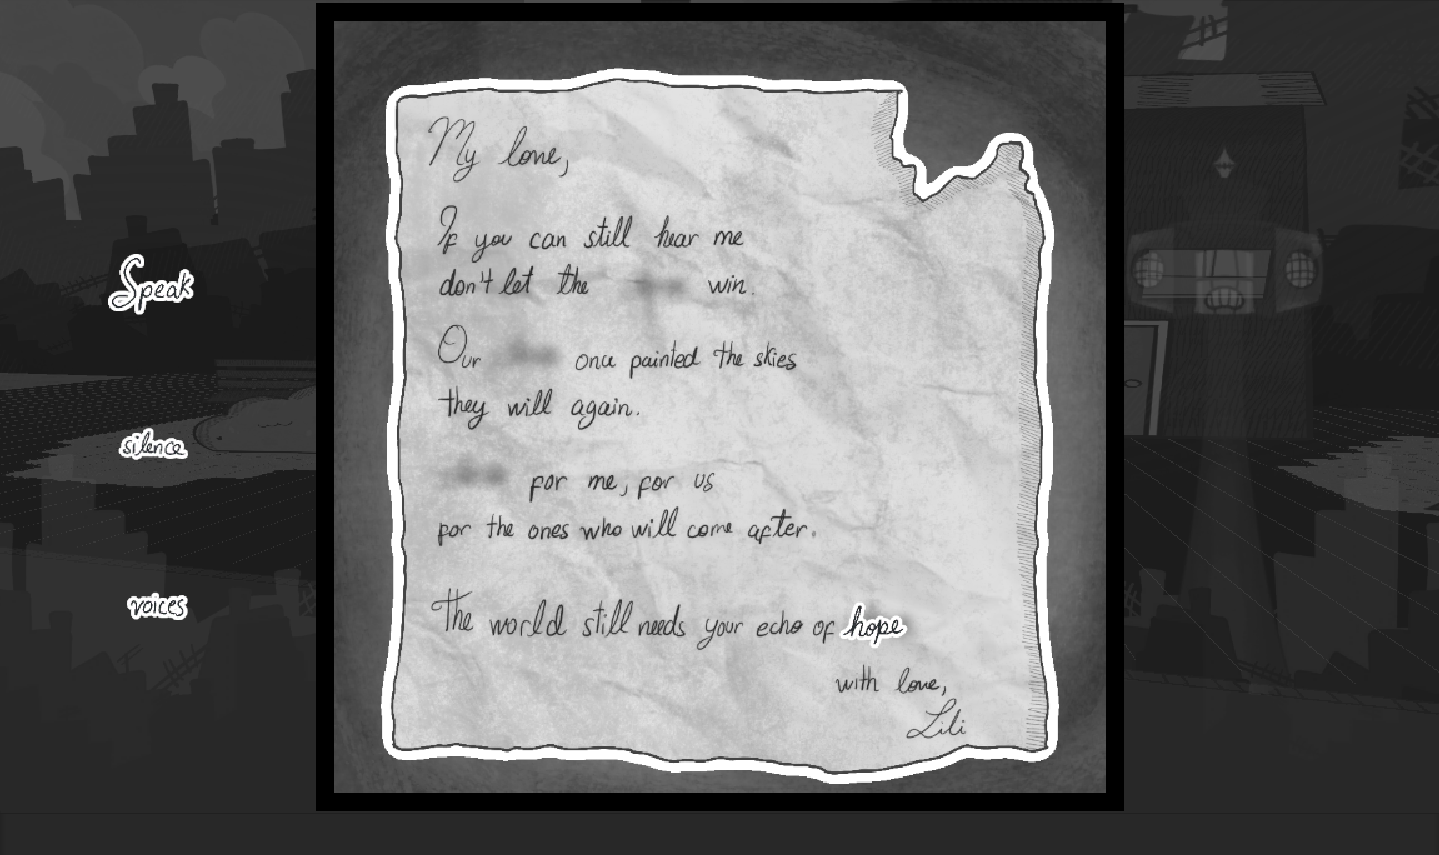 My love,
If you can still hear me
don't let the win.
Our once painted the skies
they will again.
for me, for us
for the ones who will come after.
The world still needs your echo of hope
with love,
Lili
Speak
silence
voices